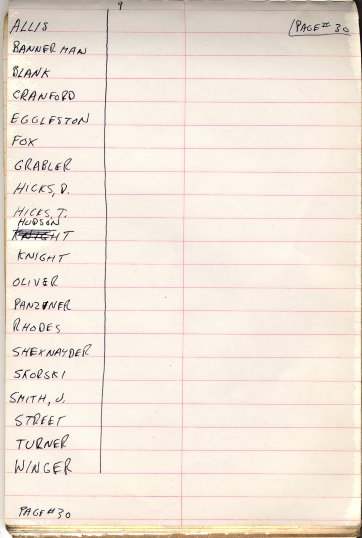 9
ALLIS
PAGE# 30
BANNERMAN
BLANK
CRANFORD
EGGLESTON
FOX
GRABLER
HICKS, D.
HICKS, T.
HUDSON
KNIGHT
KNIGHT
OLIVER
PANZINER
RHODES
SHEXNAYDER
SKORSKI
SMITH, J.
STREET
TURNER
WINGER
PAGE# 30